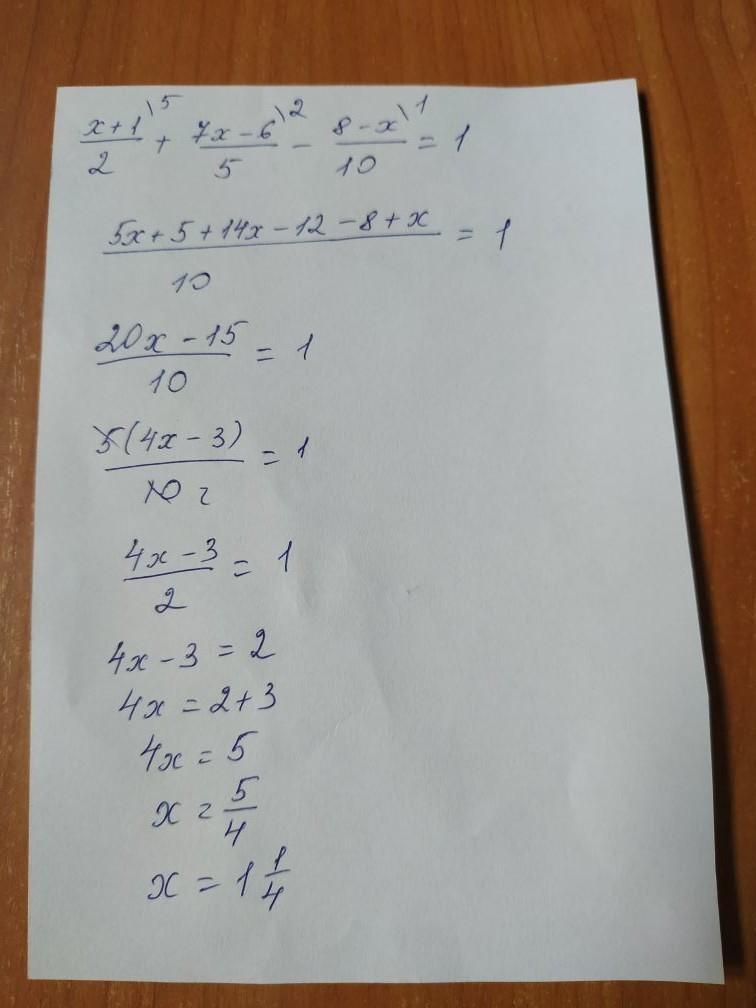 x+1\5/2 + 7x-6\2/5 - 8-x\1/10 = 1
5x+5+14x-12-8+x/10 = 1
20x-15/10 = 1
5(4x-3)/10 2 = 1
4x-3/2 = 1
4x-3 = 2
4x = 2+3
4x = 5
x = 5/4
x = 1 1/4